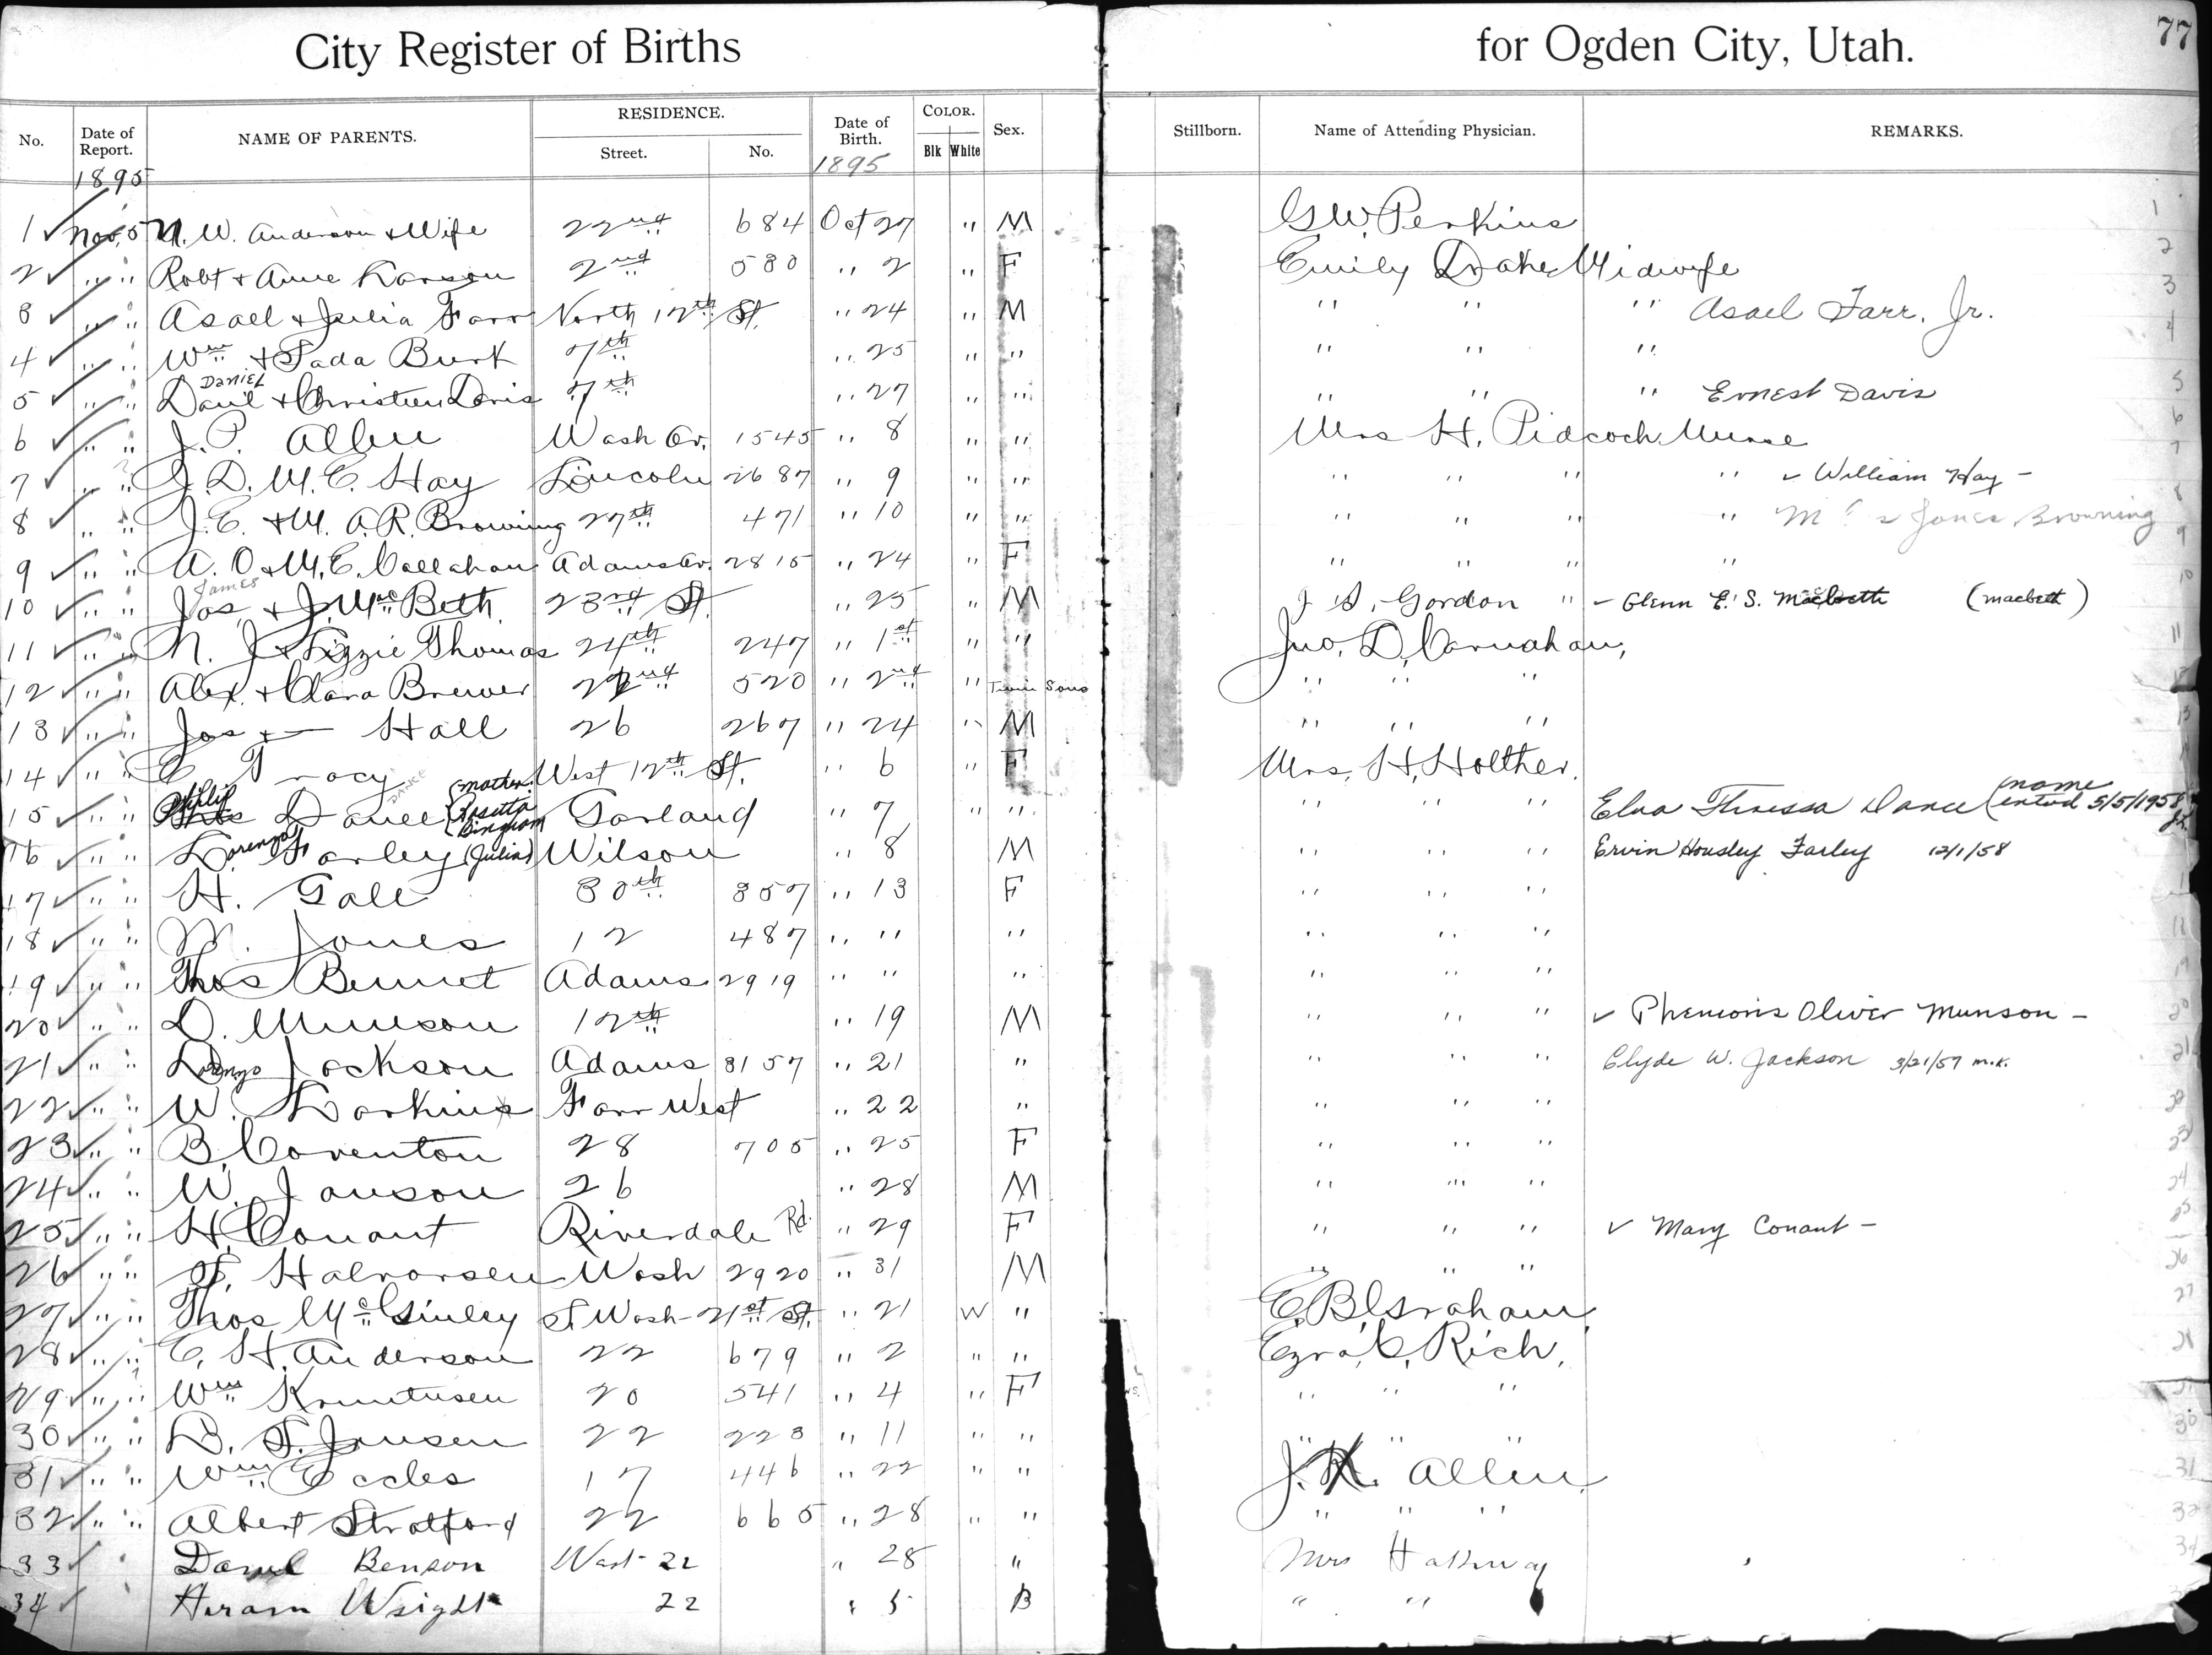 City Register of Births for Ogden City, Utah. 77
No. Date of Report. NAME OF PARENTS. RESIDENCE. Street. No. Date of Birth. COLOR. Blk White Sex. Stillborn. Name of Attending Physician. REMARKS.
1895 1895
1 Nov. 5 N. W. Anderson & Wife 22nd 684 Oct 27 " M G. W. Perkins 1
2 " " Robt & Anne Larson 2nd 580 " 2 " F Emily Drake Midwife 2
3 " " Asael & Julia Farr North 12th St. " 24 " M " " " Asael Farr, Jr. 3
4 " " Wm & Sada Burk 7th " 25 " " " " " 4
DANIEL
5 " " Danl & Christeen Davis 7th " 27 " " " " " Ernest Davis 5
6 " " J. P. Allen Wash Av. 1545 " 8 " " Mrs H. Pidcock Nurse 6
7 " " J. D. M. E. Hay Lincoln 2687 " 9 " " " " " " William Hay - 7
8 " " J. E. & M. A. R. Browning 27th 471 " 10 " " " " " " Jones Browning 8
9 " " A. O & M. E. Callahan Adams Av. 2815 " 24 " F " " " " 9
James
10 " " Jas. & J. McBeth 23rd St. " 25 " M J. S. Gordon " Glenn E. S. Macbeth (Macbeth) 10
11 " " N. J & Lizzie Thomas 24th 247 " 1st " " Jno. D. Carnahan, 11
12 " " Alex. & Clara Brewer 22nd 520 " 2nd " Twin Sons " " " 12
13 " " Jas & — Hall 26 267 " 24 " M " " " 13
14 " " E Tracy West 12th St. " 6 " F Mrs. H. Holther.
15 " " Philip Dance DANCE (Mother Rosetta Bingham Garland " 7 " " " " " Elva Theressa Dance (name entrd 5/5/1958
16 " " Lorenzo Farley (Julia) Wilson " 8 M " " " Ervin Housley Farley 12/1/58
17 " " H. Gale 30th 357 " 13 F " " "
18 " " M. Jones 12 487 " " " " " " 18
19 " " Thos Bennet Adams 2919 " " " " " " 19
20 " " D. Munson 12th " 19 M " " " Phenoris Oliver Munson - 20
21 " " Lorenzo Jackson Adams 3157 " 21 " " " " Clyde W. Jackson 3/21/57 m.k. 21
22 " " W. Larkins Farr West " 22 " " " " 22
23 " " B. Coventon 28 705 " 25 F " " " 23
24 " " W. Janson 26 " 28 M " " " 24
25 " " H. Conant Riverdale Rd. " 29 F " " " Mary Conant - 25
26 " " Halvorsen Wash 2920 " 31 M " " " 26
27 " " Thos McGinley Wash - 21st St. " 21 W " E. B. Graham 27
28 " " C. H. Anderson 22 679 " 2 " " Ezra C. Rich, 28
29 " " Wm Knuntusen 20 541 " 4 " F " " "
30 " " D. T. Jensen 22 223 " 11 " " " " " 30
31 " " Wm Eccles 17 446 " 22 " " J. K. Allen 31
32 " " Albert Stratford 22 665 " 28 " " " " " 32
33 " Daniel Benson West 22 " 28 " Mrs Hathway
34 Hiram Wright 22 " 5 B " "